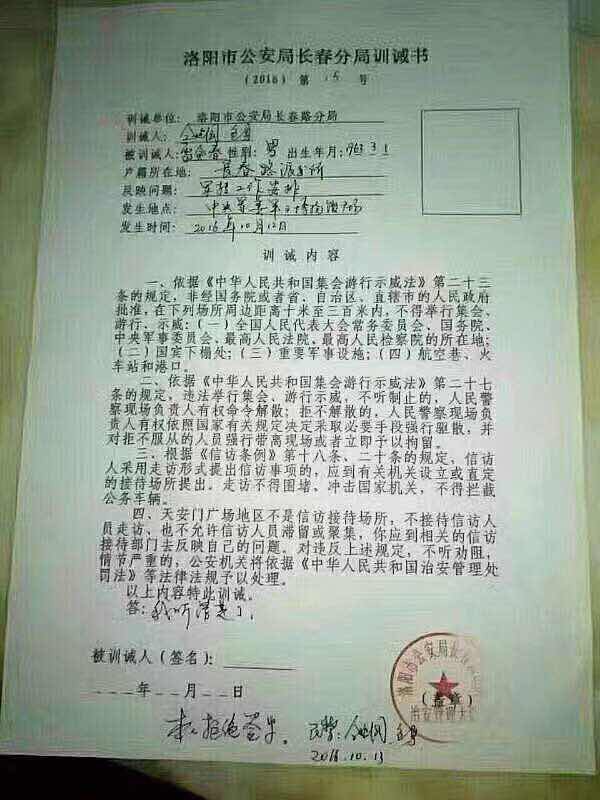 洛阳市公安局长春分局训诫书
(2016) 第 15 号
训诫单位: 洛阳市公安局长春路分局
训诫人:
被训诫人: 性别: 男 出生年月: 1963 3 1
户籍所在地: 长春路派出所
反映问题: 军转工作安排
发生地点: 中央军委
发生时间: 2016年10月12日
训诫内容
一、依据《中华人民共和国集会游行示威法》第二十三
条的规定,非经国务院或者省、自治区、直辖市的人民政府
批准,在下列场所周边距离十米至三百米内,不得举行集会、
游行、示威:(一)全国人民代表大会常务委员会、国务院、
中央军事委员会、最高人民法院、最高人民检察院的所在地;
(二)国宾下榻处;(三)重要军事设施;(四)航空巷、火
车站和港口。
二、依据《中华人民共和国集会游行示威法》第二十七
条的规定,违法举行集会、游行示威,不听制止的,人民警
察现场负责人有权命令解散;拒不解散的,人民警察现场负
责人有权依照国家有关规定决定采取必要手段强行驱散,并
对拒不服从的人员强行带离现场或者立即予以拘留。
三、根据《信访条例》第十八条、二十条的规定,信访
人采用走访形式提出信访事项的,应到有关机关设立或直定
的接待场所提出。走访不得围堵、冲击国家机关,不得拦截
公务车辆。
四、天安门广场地区不是信访接待场所,不接待信访人
员走访、也不允许信访人员滞留或聚集,你应到相关的信访
接待部门去反映自己的问题。对违反上述规定,不听劝阻,
情节严重的,公安机关将依据《中华人民共和国治安管理处
罚法》等法律法规予以处理。
以上内容特此训诫。
答:我听清楚了。
被训诫人(签名):
年 月 日
(盖章)
洛阳市公安局长春
本人拒绝签字。 民警:
2016.10.13